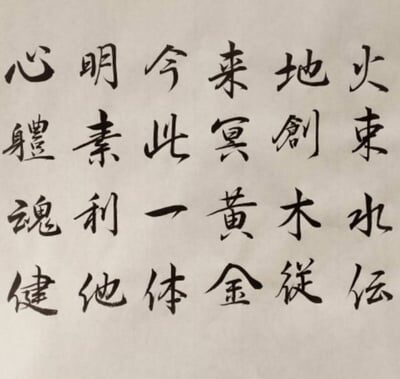 火束水伝
地創木従
来冥黄金
今此一体
明素利他
心體魂健